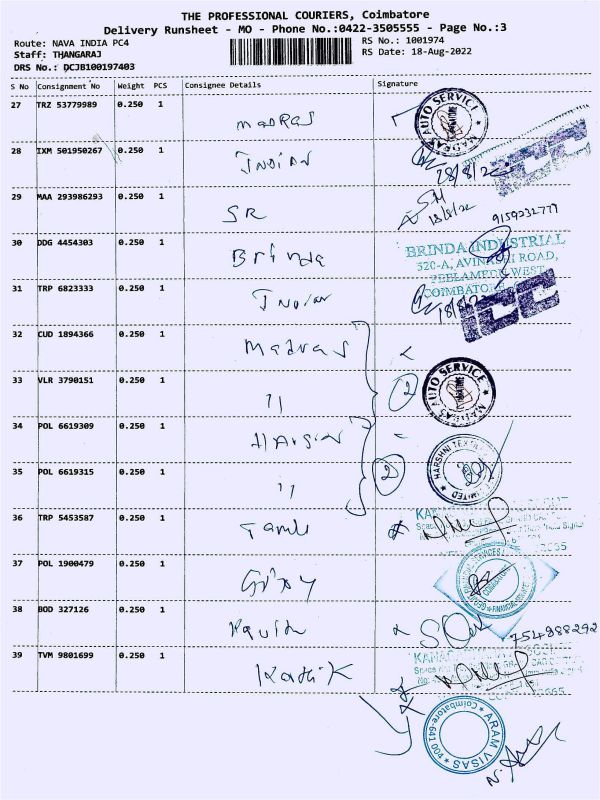 THE PROFESSIONAL COURIERS, Coimbatore
Delivery Runsheet - MO - Phone No.:0422-3505555 - Page No.:3
Route: NAVA INDIA PC4
RS No.: 1001974
Staff: THANGARAJ
RS Date: 18-Aug-2022
DRS No.: DCJB100197403
S No Consignment No Weight PCS Consignee Details Signature
27 TRZ 53779989 0.250 1 Madras
MADRAS AUTO SERVICE
28 IXM 501950267 0.250 1 Indian
ICC
29 MAA 293986293 0.250 1 SR
S.M
18/8/22
9159232777
30 DDG 4454303 0.250 1 Brinda
BRINDA INDUSTRIAL
520-A, AVINASHI ROAD,
PEELAMEDU WEST,
COIMBATORE
31 TRP 6823333 0.250 1 Indian
ICC
32 CUD 1894366 0.250 1 Madras
33 VLR 3790151 0.250 1 11 2
MADRAS AUTO SERVICE COIMBATORE
34 POL 6619309 0.250 1
35 POL 6619315 0.250 1 11 2
HARSHNI TEXTILES LIMITED
36 TRP 5453587 0.250 1 Tamil
37 POL 1900479 0.250 1
COIMBATORE
38 BOD 327126 0.250 1
754988292
39 TVM 9801699 0.250 1 Karthik
ARAM VISAS
Coimbatore-641 004